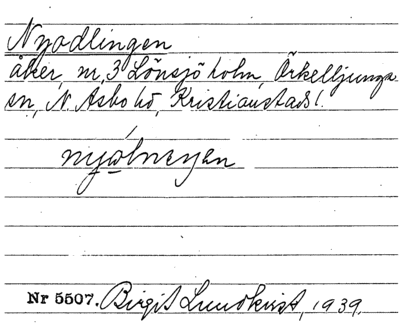 Nyodlingen
åker, nr, 3 Lönsjöholm, Örkelljunga
sn, N. Åsbo hd, Kristianstads l.
Nr 5507. Birgit Lundkvist, 1939.